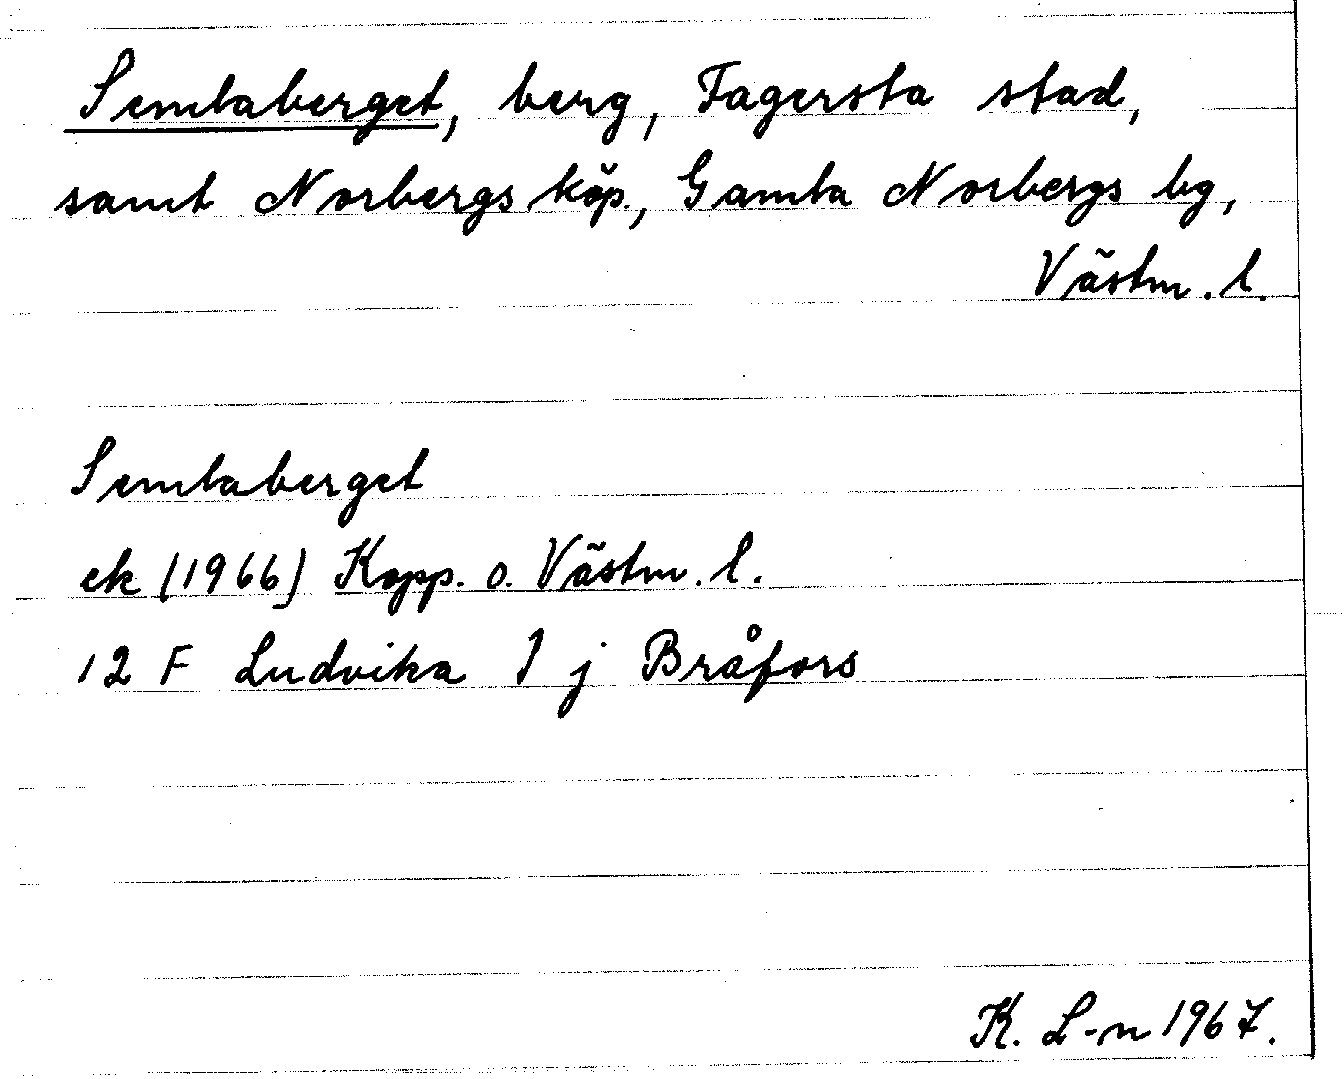 Semlaberget, berg, Fagersta stad,
samt Norbergs köp., Gamla Norbergs bg,
Västm. l.
Semlaberget
ek (1966) Kopp. o. Västm. l.
12 F Ludvika I j Bråfors
K. L-n 1967.